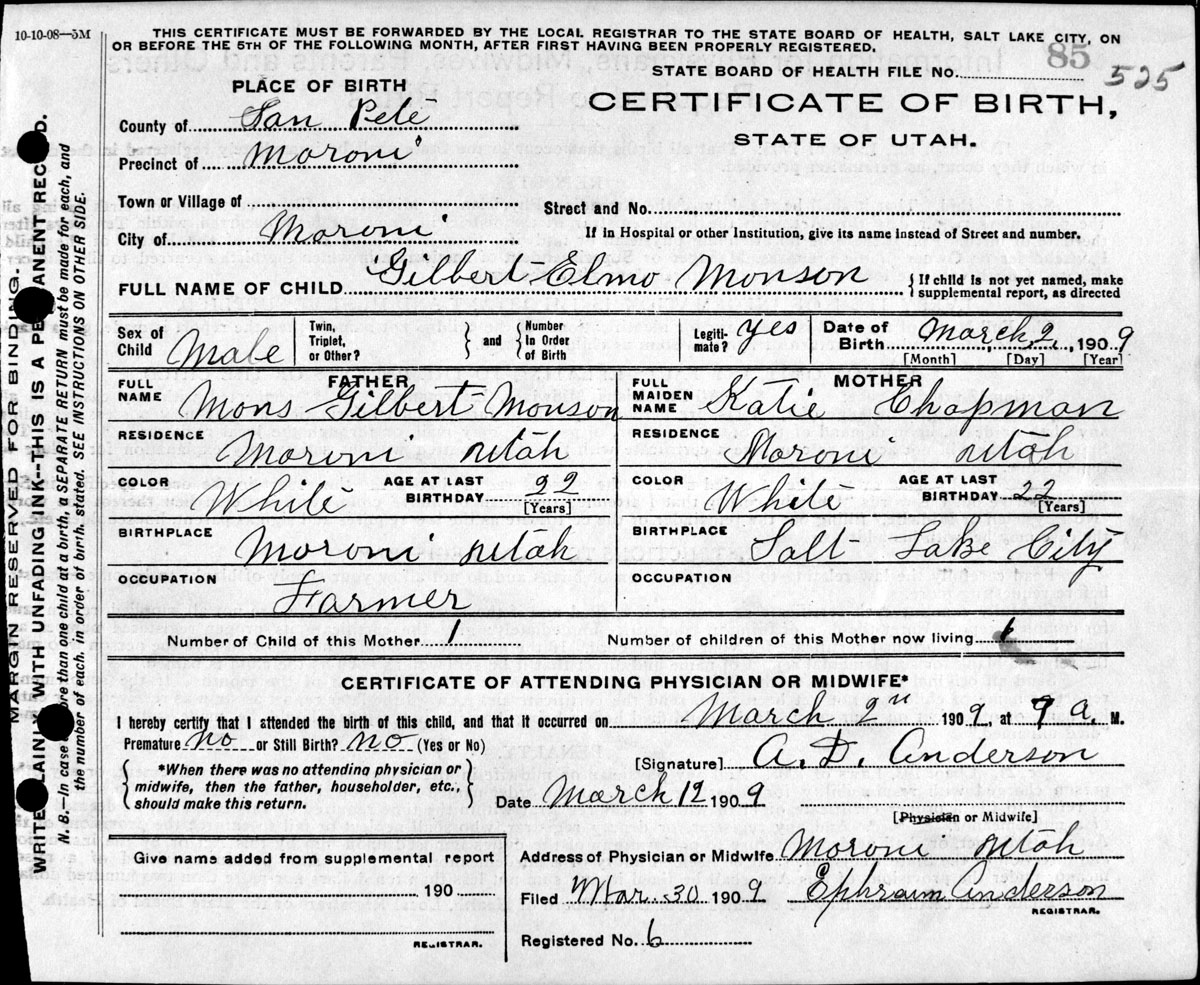 10-10-08—5M
THIS CERTIFICATE MUST BE FORWARDED BY THE LOCAL REGISTRAR TO THE STATE BOARD OF HEALTH, SALT LAKE CITY, ON
OR BEFORE THE 5TH OF THE FOLLOWING MONTH, AFTER FIRST HAVING BEEN PROPERLY REGISTERED.
STATE BOARD OF HEALTH FILE NO. 85 525
PLACE OF BIRTH
CERTIFICATE OF BIRTH,
STATE OF UTAH.
County of San Pete
Precinct of Moroni
Town or Village of
Street and No.
City of Moroni
If in Hospital or other Institution, give its name instead of Street and number.
FULL NAME OF CHILD Gilbert Elmo Monson
{If child is not yet named, make
supplemental report, as directed
Sex of Child Male
Twin, Triplet, or Other? } and { Number In Order of Birth
Legiti-mate? yes
Date of Birth March 2, 1909
[Month] [Day] [Year]
FATHER
FULL NAME Mons Gilbert Monson
RESIDENCE Moroni Utah
COLOR White AGE AT LAST BIRTHDAY 22 [Years]
BIRTHPLACE Moroni Utah
OCCUPATION Farmer
MOTHER
FULL MAIDEN NAME Katie Chapman
RESIDENCE Moroni Utah
COLOR White AGE AT LAST BIRTHDAY 22 [Years]
BIRTHPLACE Salt Lake City
OCCUPATION
Number of Child of this Mother 1
Number of children of this Mother now living
CERTIFICATE OF ATTENDING PHYSICIAN OR MIDWIFE*
I hereby certify that I attended the birth of this child, and that it occurred on March 2nd 1909, at 9 a. M.
Premature no or Still Birth? no (Yes or No)
[Signature] A. D. Anderson
{*When there was no attending physician or
midwife, then the father, householder, etc.,
should make this return.}
Date March 12 1909
[Physician or Midwife]
Give name added from supplemental report
190
REGISTRAR.
Address of Physician or Midwife Moroni Utah
Filed Mar. 30 1909 Ephraim Anderson
REGISTRAR.
Registered No. 6
MARGIN RESERVED FOR BINDING.
WRITE PLAINLY WITH UNFADING INK--THIS IS A PERMANENT RECORD.
N. B.—In case of more than one child at birth, a SEPARATE RETURN must be made for each, and
the number of each, in order of birth, stated. SEE INSTRUCTIONS ON OTHER SIDE.